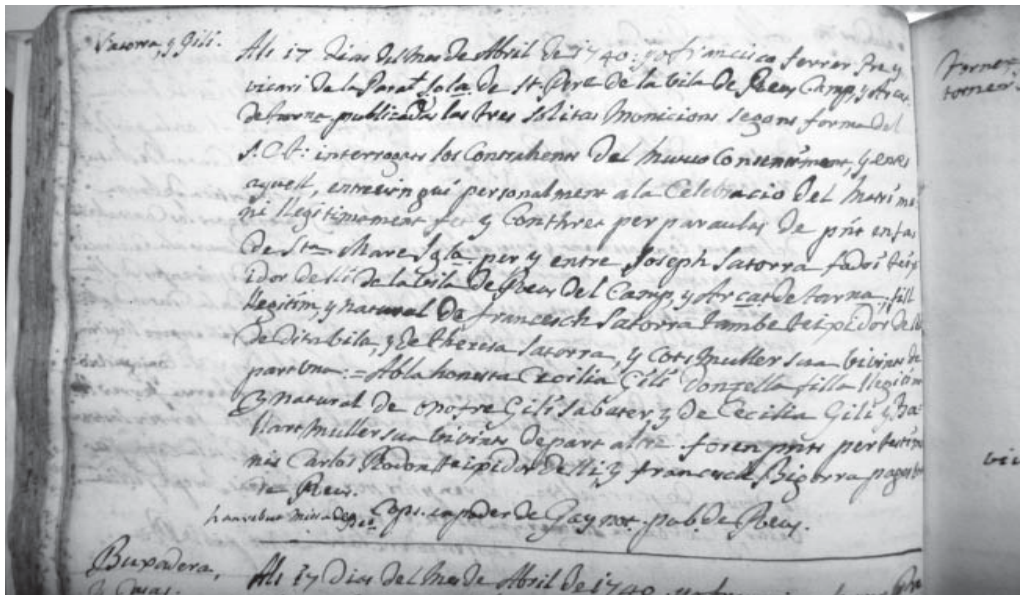 Satorra, y Gili.
Als 17 dias del Mes de Abril de 1740: jo Francisco Ferrer Pre y
vicari de la Paral. Igla. de St. Pere de la vila de Reus Camp, y Arcat.
de Tarna. publicadas las tres solitas Monicions segons forma del
S. C. T: interrogats los Contrahents del mutuo Consentiment, y entes
aquell, entrevingui personalment a la Celebracio del Matrimo
ni llegitimament fet y Conthret per paraulas de pnt en fas
de Sta. Mare Igla. per y entre Joseph Satorra fadri teixi
dor de lli de la vila de Reus del Camp, y Arcat de Tarna., fill
llegitim, y natural de Francesch Satorra tambe teixidor de lli
de dita vila, y de Theresa Satorra, y Cots Muller sua vivints de
part una: = Ab la honesta Cecilia Gili Donzella filla llegitima
y natural de Onofre Gili Sabater y de Cecilia Gili y Ba
llart Muller sua vivints de part altra. foren pnts per testimo
nis Carlos Rodon teixidor de lli, y Francesch Bigorra pages
de Reus.
Caps. en poder de Gay not. pub. de Reus.
Buxadera,
y Casas.
Als 17 Dias del Mes de Abril de 1740
Torner,
torner